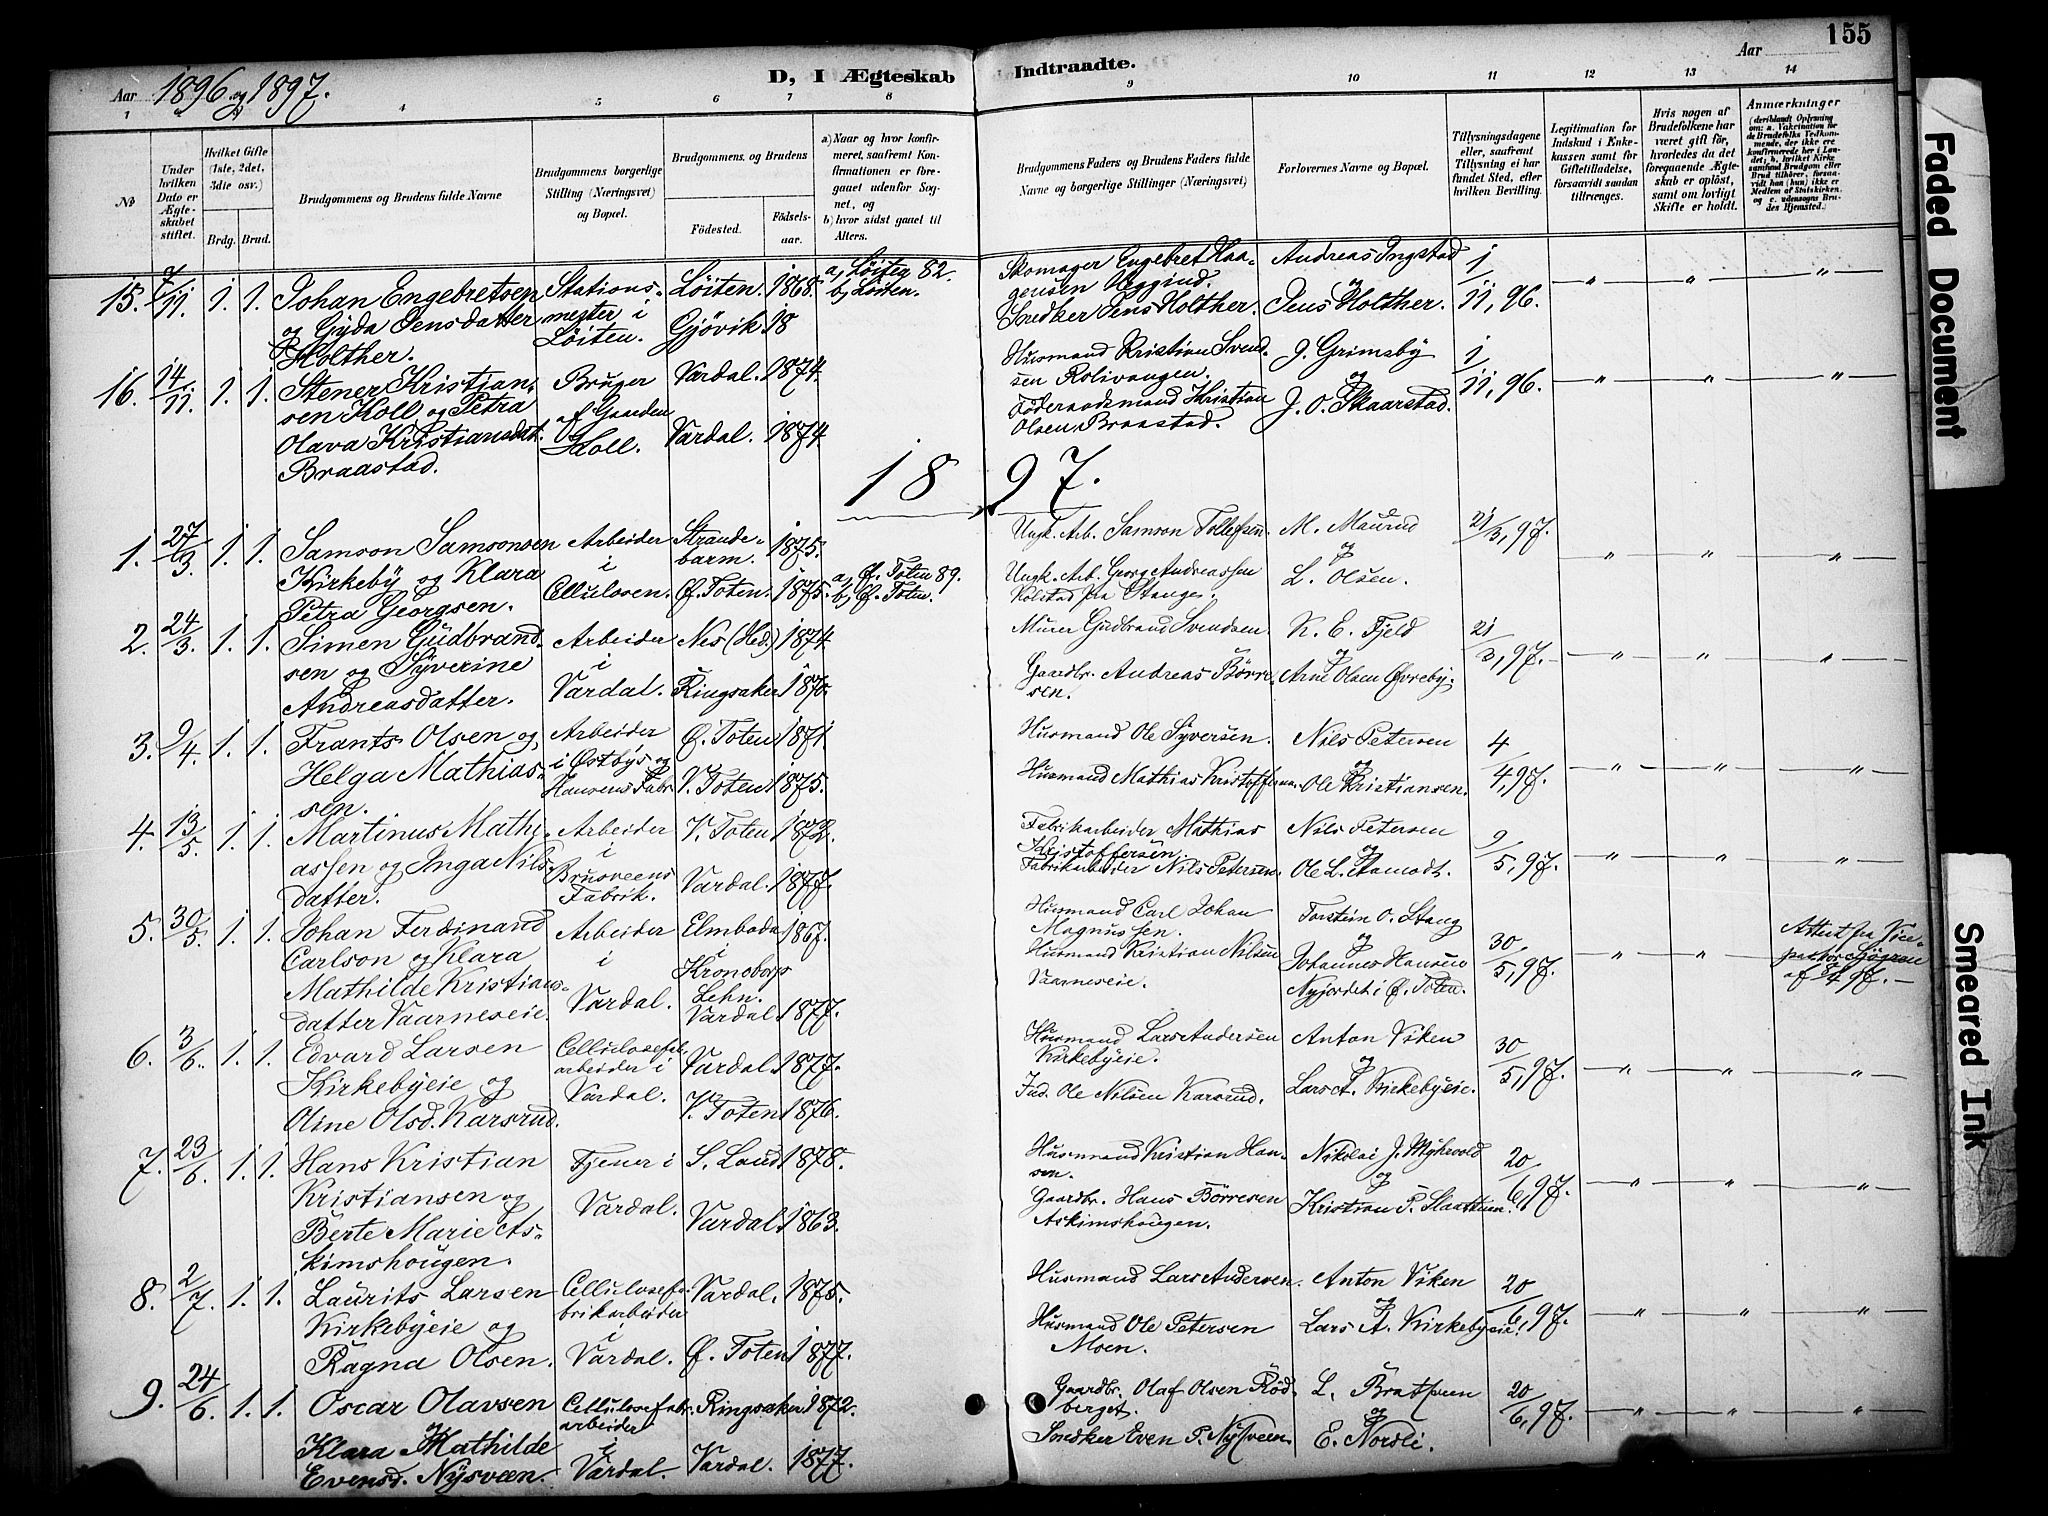 155
Aar 1896 og 1897.
D, I Ægteskab Indtraadte.
Aar
1 4 5 6 7 8 9 10 11 12 13 14
No
Under hvilken Dato er Ægteskabet stiftet.
Hvilket Gifte (1ste, 2det, 3die osv.)
Brdg. Brud.
Brudgommens og Brudens fulde Navne
Brudgommens borgerlige Stilling (Næringsvei) og Bopæl.
Brudgommens og Brudens
Födested.
Födselsaar.
a) Naar og hvor konfirmeret, saafremt Konfirmationen er foregaaet udenfor Sognet, og
b) hvor sidst gaaet til Alters.
Brudgommens Faders og Brudens Faders fulde Navne og borgerlige Stillinger (Næringsvei)
Forlovernes Navne og Bopæl.
Tillysningsdagene eller, saafremt Tillysning ei har fundet Sted, efter hvilken Bevilling.
Legitimation for Indskud i Enkekassen samt for Giftetilladelse, forsaavidt saadan tiltrænges.
Hvis nogen af Brudefolkene har været gift för, hvorledes da det foregaaende Ægteskab er oplöst, samt om lovligt Skifte er holdt.
Anmærkninger
15. 7/11. 1. 1. Johan Engebretsen og Gyda Jensdatter Holther. Stationsmester i Løiten. Løiten. 1868. Gjøvik 18 a, Løiten 82. b, Løiten. Skomager Engebret Haagensen Snedker Jens Holther. Andreas Ingstad og Jens Holther. 1/11, 96. " " "
16. 14/11. 1. 1. Stener Kristiansen Holl og Petra Olava Kristiansdat. Braastad. Bruger af Gaarden Holl. Vardal. 1874. Vardal. 1874 Husmand Kristian Svendsen Rolivangen. Föderaadsmand Kristian Olsen Braastad. J. Grimsby og J. O. Skaarstad. 1/11, 96. " " "
1897.
1. 27/3. 1. 1. Samson Samsonsen Kirkeby og Klara Petra Georgsen. Arbeider i Cellulosen. Strandebarm. 1875. Ø. Toten. 1875. a, Ø. Toten 89. b, Ø. Toten. Ungk. Arb. Samson Tollefsen. Ungk. Arb. Georg Andreassen Kolstad fra Stange. M. Maurud og L. Olsen. 21/3, 97. " " "
2. 24/3. 1. 1. Simen Gudbrandsen og Syverine Andreasdatter. Arbeider i Vardal. Nes (Hed.) 1874. Ringsaker 1870. Murer Gudbrand Svendsen. Gaardbr. Andreas Børresen. K. E. Fjeld og Arne Olsen Øvreby. 21/3, 97. " " "
3. 9/4. 1. 1. Frants Olsen og Helga Mathiassen. Arbeider i Østbys og Hansens Fabr. Ø. Toten 1871. V. Toten 1875. Husmand Ole Syversen. Husmand Mathias Kristoffersen. Nils Petersen og Ole Kristiansen. 4/4, 97. " " "
4. 13/5. 1. 1. Martinus Mathiassen og Inga Nilsdatter. Arbeider i Brusveens Fabrik. V. Toten 1872. Vardal. 1877. Fabrikarbeider Mathias Kristoffersen. Fabrikarbeider Nils Petersen. Nils Petersen og Ole L. Stamodt. 9/5, 97. " " "
5. 30/5. 1. 1. Johan Ferdinand Carlson og Klara Mathilde Kristiansdatter Vaarneseie. Arbeider i Vardal. Elmboda i Kronobergs Lehn. 1867. Vardal 1877. Husmand Carl Johan Magnussen. Husmand Kristian Nilsen Vaarneseie. Torstein O. Stang og Johannes Hansen Nyjordet i Ø. Toten. 30/5, 97. " " Attest fra Vicepastor Sjögren af 8/4 97.
6. 3/6. 1. 1. Edvard Larsen Kirkebyeie og Oline Olsd. Karsrud. Cellulosefab. arbeider i Vardal. Vardal 1877. V. Toten 1876. Husmand Lars Andersen Kirkebyeie. Ind. Ole Nilsen Karsrud. Anton Viken og Lars A. Kirkebyeie. 30/5, 97. " " "
7. 23/6. 1. 1. Hans Kristian Kristiansen og Berte Marie Askimshougen. Tjener i Vardal. S. Land 1878. Vardal 1863. Husmand Kristian Hansen. Gaardbr. Hans Børresen Askimshougen. Nikolai J. Myhrvold og Kristian P. Slaathun. 20/6, 97. " " "
8. 2/7. 1. 1. Laurits Larsen Kirkebyeie og Ragna Olsen. Cellulosefabrikarbeider i Vardal. Vardal. 1875. Ø. Toten 1877. Husmand Lars Andersen. Husmand Ole Petersen Moen. Anton Viken og Lars A. Kirkebyeie. 20/6, 97. " " "
9. 24/6. 1. 1. Oscar Olavsen og Klara Mathilde Evensd. Nysveen. Cellulosefabr. arbeider i Vardal. Ringsaker 1872. Vardal. 1877. Gaardbr. Olaf Olsen Rödberget. Snedker Even P. Nysveen. L. Bratsveen og E. Nordli. 20/6, 97. " " "
Faded Document
Smeared Ink